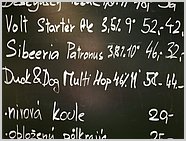 Volt Starter Ale 3,5% 9° 52,- 42,-
Sibeeria Patronus 3,8% 10° 46,- 32,-
Duck & Dog Multi Hop 46/11° 54,- 44,-
• nivový koule 29-
• obložený půlkrajíc 25-